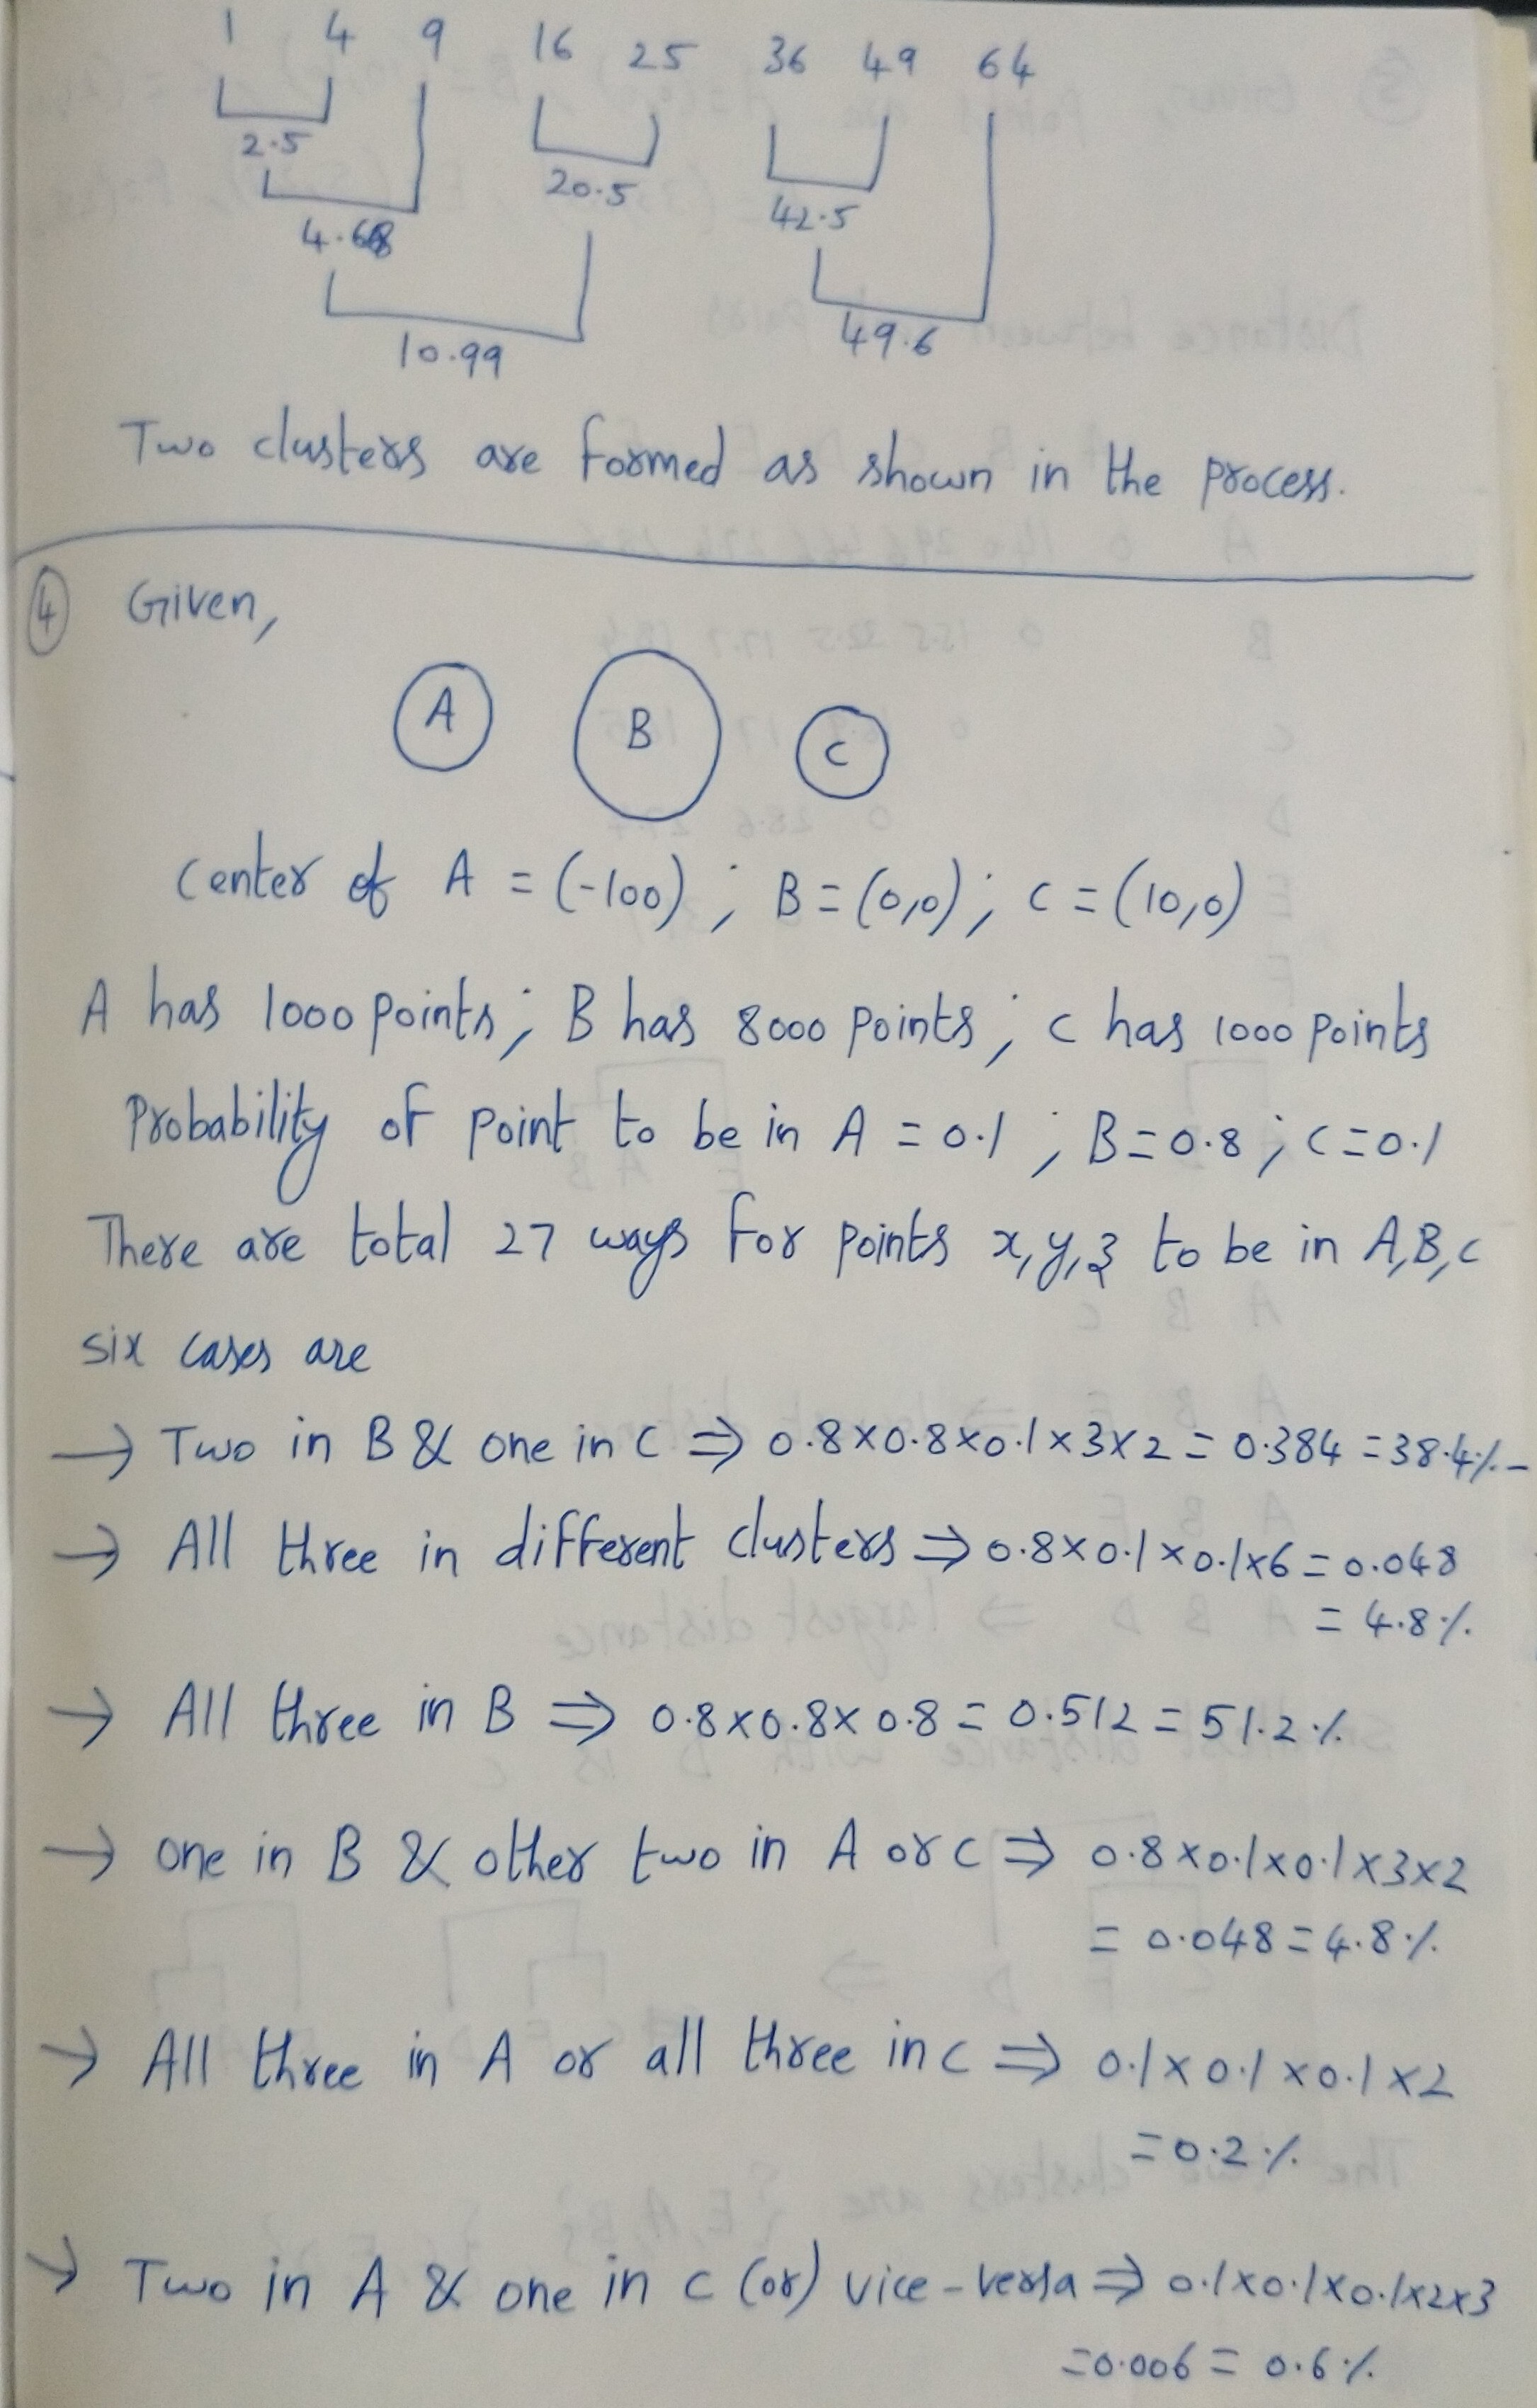 1 4 9 16 25 36 49 64
2.5 20.5 42.5
4.68
10.99 49.6
Two clusters are formed as shown in the process.
④ Given,
A B C
center of A = (-100) ; B = (0,0) ; C = (10,0)
A has 1000 points ; B has 8000 points ; C has 1000 points
Probability of point to be in A = 0.1 ; B = 0.8 ; C = 0.1
There are total 27 ways for points x,y,z to be in A,B,C
six cases are
→ Two in B & one in C ⇒ 0.8×0.8×0.1×3×2 = 0.384 = 38.4%
→ All three in different clusters ⇒ 0.8×0.1×0.1×6 = 0.048
= 4.8%
→ All three in B ⇒ 0.8×0.8×0.8 = 0.512 = 51.2%
→ one in B & other two in A or C ⇒ 0.8×0.1×0.1×3×2
= 0.048 = 4.8%
→ All three in A or all three in C ⇒ 0.1×0.1×0.1×2
= 0.2%
→ Two in A & one in C (or) vice-versa ⇒ 0.1×0.1×0.1×2×3
= 0.006 = 0.6%